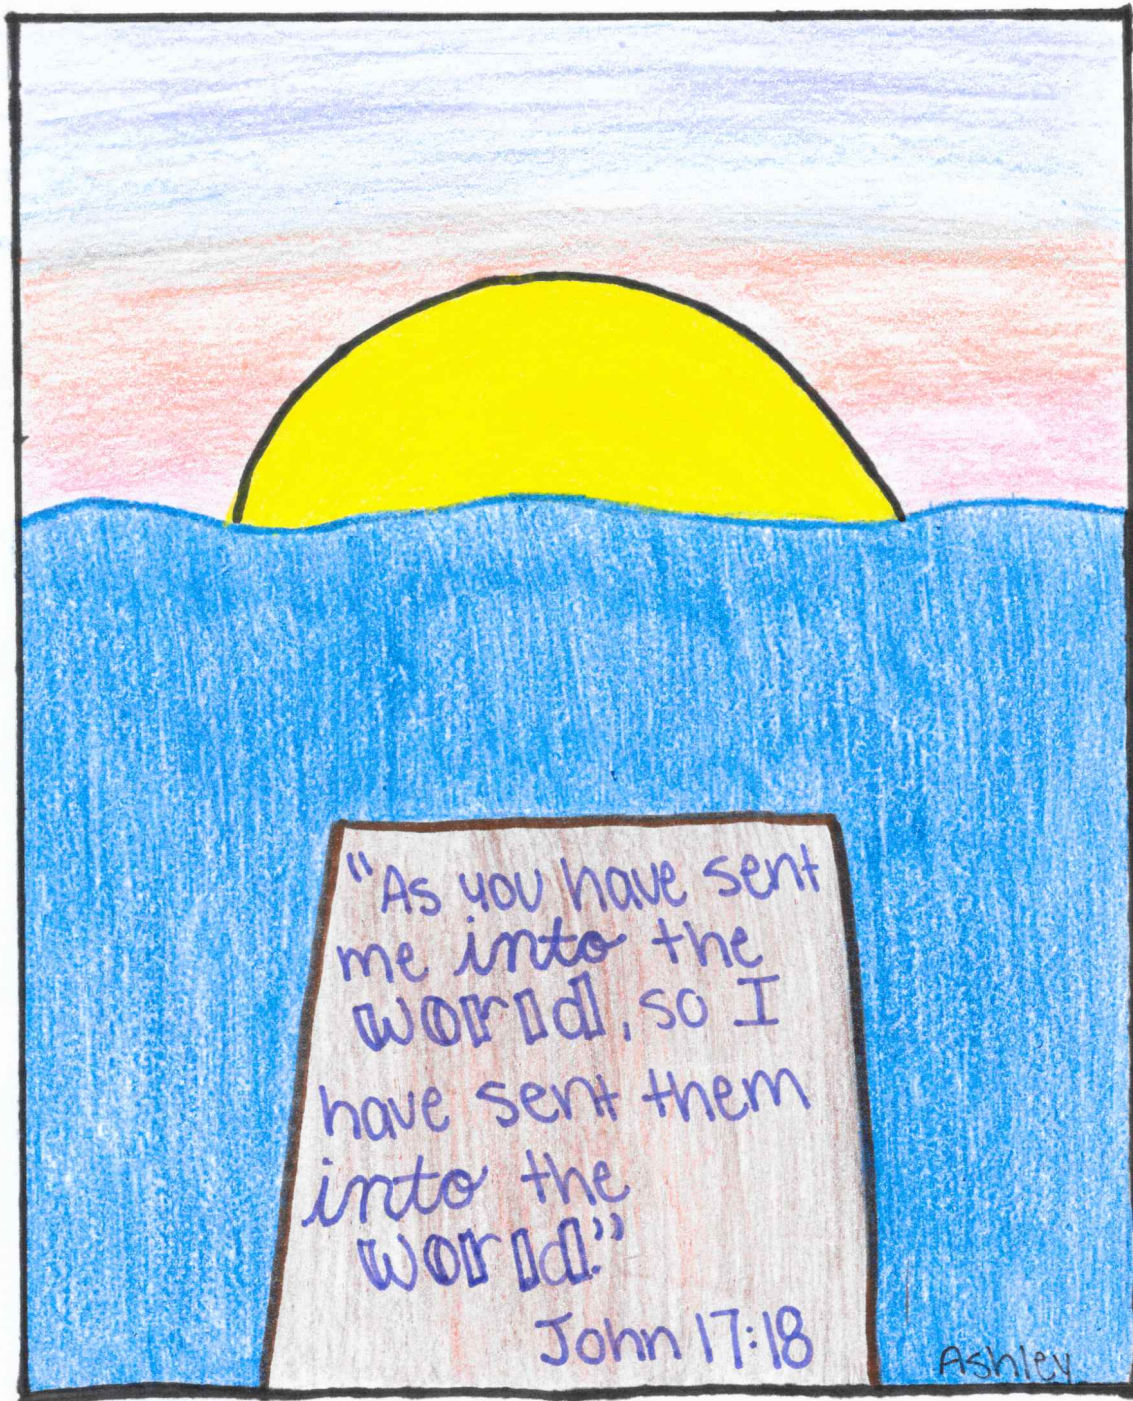 "As you have sent
me into the
world, so I
have sent them
into the
world."
John 17:18
Ashley